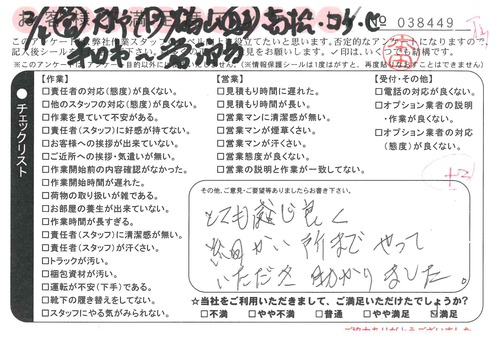 № 038449
このアンケートは弊社作業スタッフ
役立てたいと思います。否定的なアンケートになりますので、
記入後シール
意見をお願いします。✓印は、いくつでも結構です。
※このアンケートは
目的以外には
(※情報保護シールは1度はがすと、再度貼り
はできません)
チェックリスト
【作業】
□責任者の対応(態度)が良くない。
□他のスタッフの対応(態度)が良くない。
□作業を見ていて不安がある。
□責任者(スタッフ)に好感が持てない。
□お客様への挨拶が出来ていない。
□ご近所への挨拶・気遣いが無い。
□作業開始前の内容確認がなかった。
□作業開始時間が遅れた。
□荷物の取り扱いが雑である。
□お部屋の養生が出来ていない。
□作業時間が長すぎる。
□責任者(スタッフ)に清潔感が無い。
□責任者(スタッフ)が汗くさい。
□トラックが汚い。
□梱包資材が汚い。
□運転が不安(下手)である。
□靴下の履き替えをしてない。
□スタッフにやる気がみられない。
【営業】
□見積もり時間に遅れた。
□見積もり時間が長い。
□営業マンに清潔感が無い。
□営業マンが煙草くさい。
□営業マンが汗くさい。
□営業態度が良くない。
□営業の説明と作業が一致してない。
【受付・その他】
□電話の対応が良くない。
□オプション業者の説明
・作業が良くない。
□オプション業者の対応
(態度)が良くない。
その他、ご意見・ご要望等ありましたらお書き下さい。
とても感じ良く
細かい所までやって
いただき助かりました。
☆当社をご利用いただきまして、ご満足いただけてでしょうか?
□不満 □やや不満 □普通 □やや満足 ☑満足
ご協力ありがとうございました